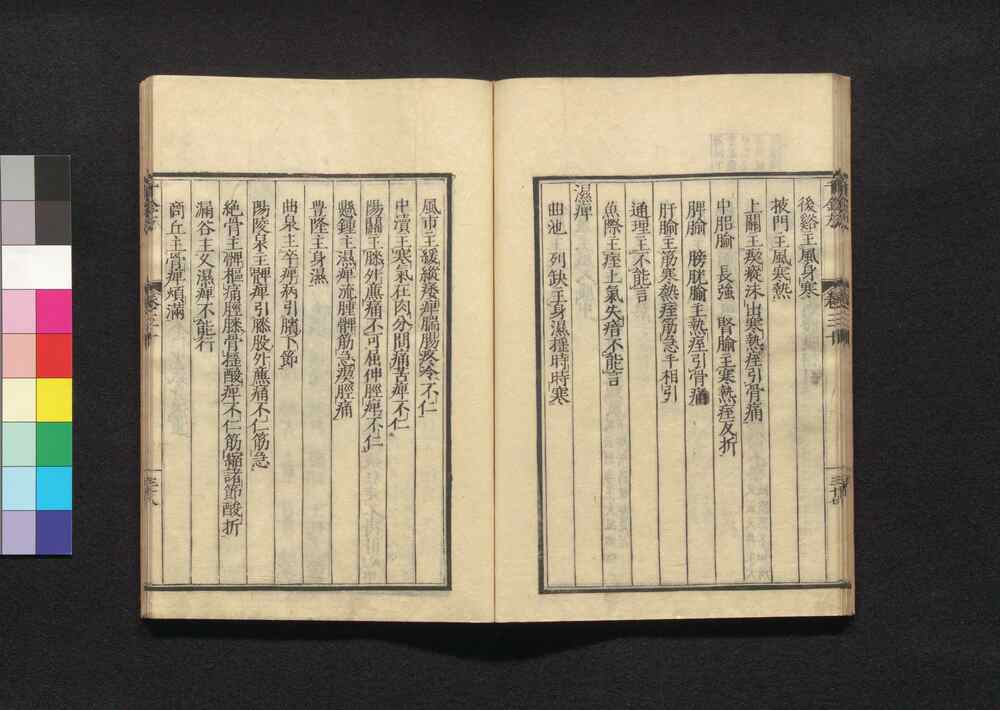 後谿主風身寒
掖門主風寒熱
上關主瘈瘲沫出寒熱痓引骨痛
中膂腧 長強 腎腧主寒熱痓反折
脾腧 膀胱腧主熱痓引骨痛
肝腧主筋寒熱痓筋急手相引
通理主不能言
魚際主痓上氣失瘖不能言
濕痺
曲池 列缺主身濕揺時時寒
風市主緩縱痿痺腨腸疼冷不仁
中瀆主寒氣在肉分間痛苦痺不仁
陽關主膝外廉痛不可屈伸脛痺不仁
懸鍾主濕痺流腫髀筋急瘈脛痛
豊隆主身濕
曲泉主卒痺病引臏下節
陽陵泉主髀痺引膝股外廉痛不仁筋急
絶骨主髀樞痛脛膝骨揺酸痺不仁筋縮諸節酸折
漏谷主久濕痺不能行
商丘主骨痺煩滿